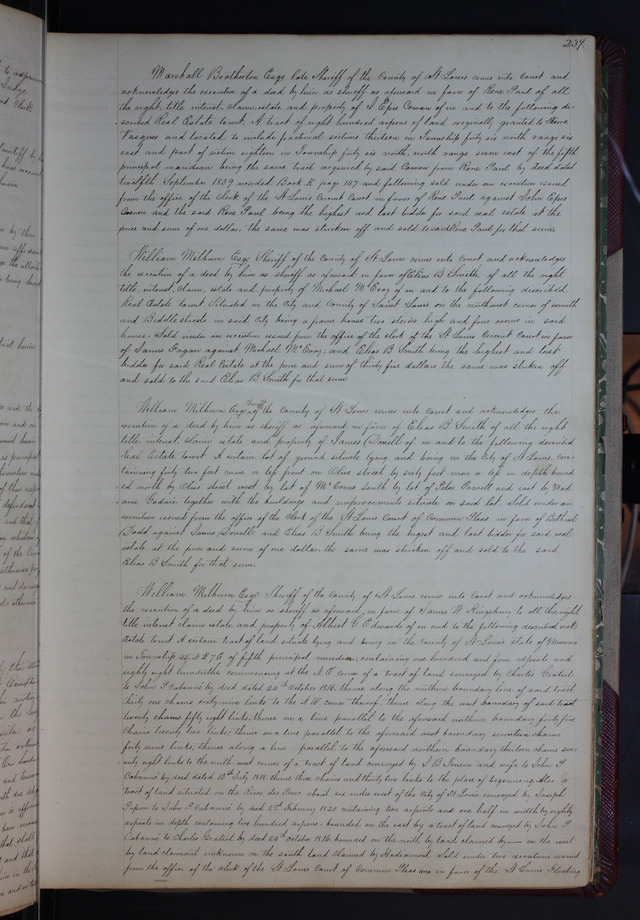 239.
Marshall Brotherton Esqr late Sheriff of the County of St Louis comes into Court and
acknowledges the execution of a deed by him as sheriff as aforesaid in favor of Rene Paul of all
the right title interest, claim, estate and property of J Epes Cowan of in and to the following de-
scribed Real Estate towit. A tract of eight hundred arpens of land originally granted to
Vasques and located to include factional sections thirteen in Township forty six north range six
east and part of section eighteen in Township forty six north, north range seven east of the fifth
principal meridian being the same tract acquired by said Cowan from Rene Paul by deed dated
twelfth September 1839 recorded Book K page 147 and following sold under an execution issued
from the office of the clerk of the St Louis Circuit Court in favor of Rene Paul against John Epes
Cowan and the said Rene Paul being the highest and last bidder for said real estate at the
price and sum of one dollar. the same was stricken off and sold to said Rene Paul for that sum.
William Milburn Esqr Sheriff of the County of St Louis comes into Court and acknowledges
the execution of a deed by him as sheriff as aforesaid in favor of Elias B Smith of all the right
title, interest, claim, estate and property of Michael McEnoy of in and to the following described
Real Estate towit Situated in the City and County of Saint Louis on the northwest corner of seventh
and Biddle streets in said City being a frame house two stories high and four rooms in said
house. Sold under an execution issued from the office of the clerk of the St Louis Circuit Court in favor
of James Fagan against Michael McEnoy; and Elias B Smith being the highest and last
bidder for said Real Estate at the price and sum of thirty five dollars the same was stricken off
and sold to the said Elias B Smith for that sum
William Milburn Esqr Sheriff of the County of St Louis comes into Court and acknowledges the
execution of a deed by him as sheriff as aforesaid in favor of Elias B Smith of all the right
title, interest, claim estate and property of James Small of in and to the following described
Real Estate towit. A certain lot of ground situate lying and being in the City of St Louis, con-
taining forty two feet more or less front on Olive street by sixty feet more or less in depth bound
ed north by Olive street west by lot of McEvers south by lot of Peter Powell and east by Mad
ame Godair together with the buildings and improvements situate on said lot. Sold under an
execution issued from the office of the clerk of the St Louis Court of Common Pleas in favor of
Dodd against James Small and Elias B Smith being the higest and last bidder for said real
estate, at the price and sum of one dollar, the same was stricken off and sold to the said
Elias B Smith for that sum.
William Milburn Esqr Sheriff of the County of St Louis comes into Court and acknowledges
the execution of a deed by him as sheriff as aforesaid, in favor of James W Kingsbury to all the right
title interest claim estate and property of Albert G Edwards of in and to the following described real
Estate towit A certain tract of land situate lying and being in the County of St Louis State of Missouri
in Township 45, R 7 E of fifth principal meridian; containing one hundred and four arpents and
eighty eight hundredths commencing at the N.E corner of a tract of land conveyed by Charles Gratiot
to John P Cabanné by deed dated 24th October 1816; thence along the northern boundary line of said tract
thirty one chains sixty nine links to the N.W corner thereof thence along the west boundary of said tract
twenty chains, fifty eight links, thence on a line parallel to the aforesaid northern boundary forty five
chains twenty two links; thence on a line parallel to the aforesaid west boundary seventeen chains
forty nine links, thence along a line parallel to the aforesaid northern boundary thirteen chains sev-
enty eight links to the north west corner of a tract of land conveyed by and wife to John P
Cabanné by deed dated 13th July 1818; thence three chains and thirty two links to the place of beginning Also a
tract of land situated on the River des Peres about six miles west of the City of St Louis conveyed by Joseph
Papin to John P Cabanné by deed 2nd February 1820 containing two arpents and one half in width by eighty
arpents in depth containing two hundred arpens. bounded on the east by a tract of land conveyed by John P
Cabanné to Charles Gratiot by deed 24th October 1816. bounded on the north by land claimed by—— on the west
by land claimant unknown on the south land claimed by Hodiamont. Sold under two executions issued
from the office of the clerk of the St Louis Court of Common Pleas one in favor of the St Louis Floating